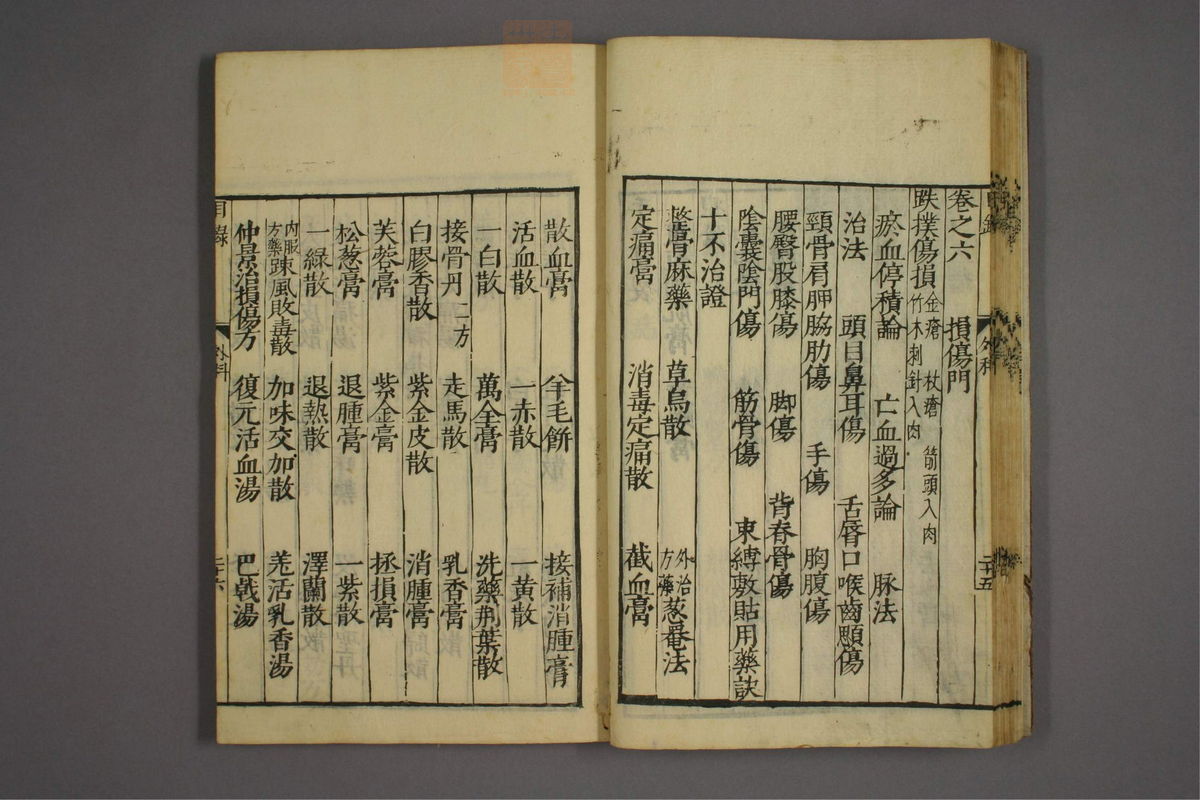 卷之六　　損傷門
跌撲傷損　金瘡　杖瘡　箭頭入肉
竹木刺針入肉
瘀血停積論　亡血過多論　脉法
治法　頭目鼻耳傷　舌脣口喉齒顋傷
頸骨肩胛脇肋傷　手傷　胸腹傷
腰臀股膝傷　脚傷　背脊骨傷
陰囊陰門傷　筋骨傷　束縛敷貼用藥訣
十不治證
整骨麻藥　草烏散　外治方藥　葱罨法
定痛膏　消毒定痛散　截血膏
外科
二十五
散血膏　羊毛餅　接補消腫膏
活血散　一赤散　一黃散
一白散　萬全膏　洗藥荆葉散
接骨丹二方　走馬散　乳香膏
白膠香散　紫金皮散　消腫膏
芙蓉膏　紫金膏　拯損膏
松葱膏　退腫膏　一紫散
一綠散　退熱散　澤蘭散
內服方藥　踈風敗毒散　加味交加散　羌活乳香湯
仲景治損傷方　復元活血湯　巴戟湯
目錄
外科
二十六